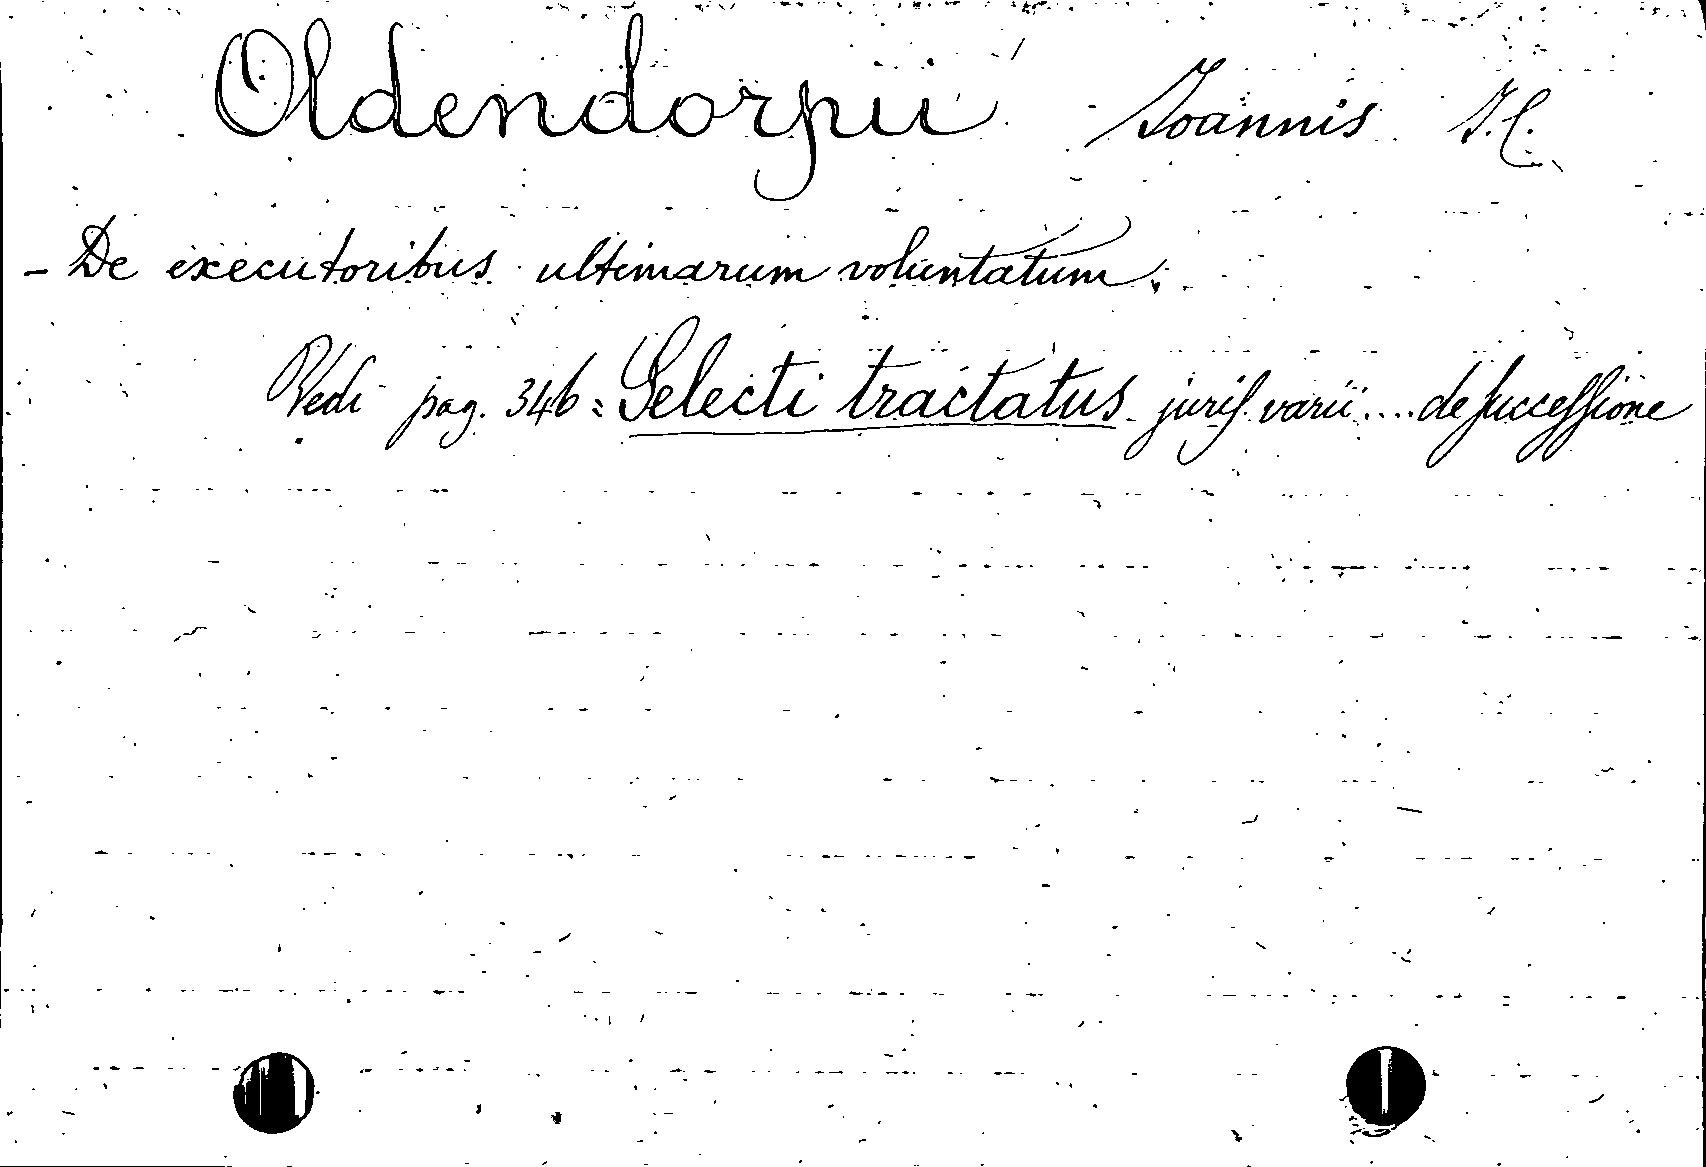 Oldendorpii Joannis J.C.
- De executoribus ultimarum voluntatum.
Vedi pag. 346 = Selecti tractatus juris varii.... de successione